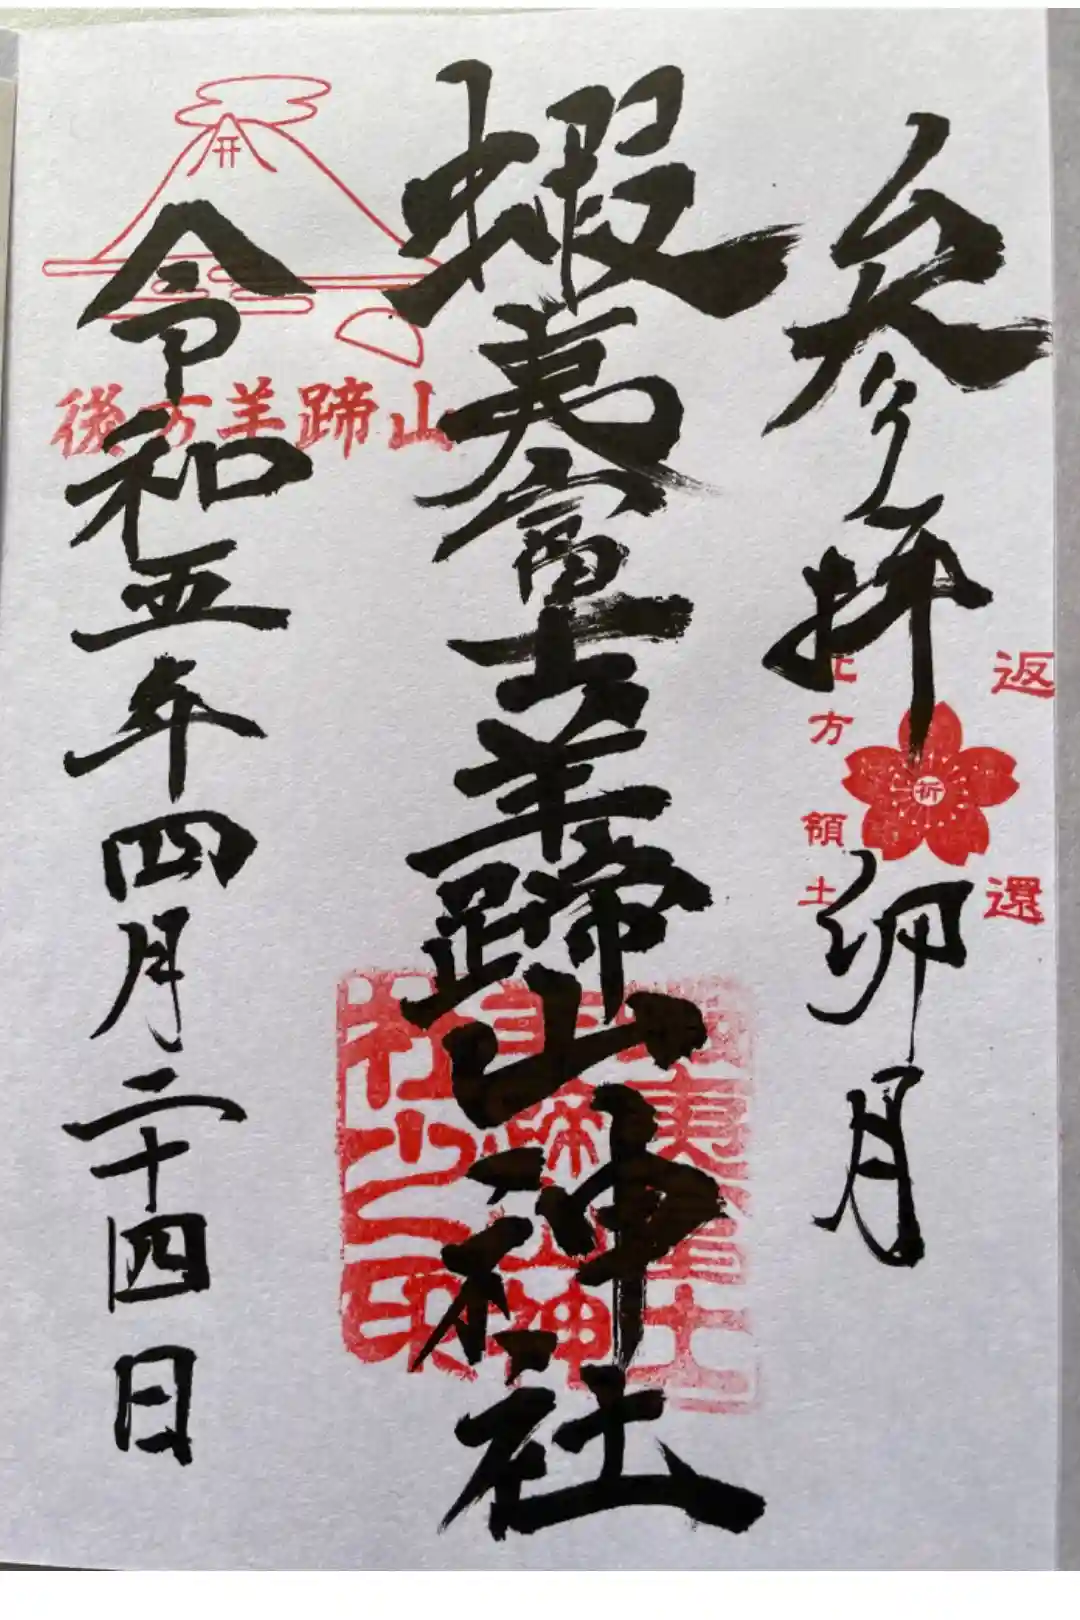 参拝 卯月
返還
祈
北方領土
蝦夷富士羊蹄山神社
蝦夷富士
羊蹄山神
社之印
令和五年四月二十四日
開
後方羊蹄山